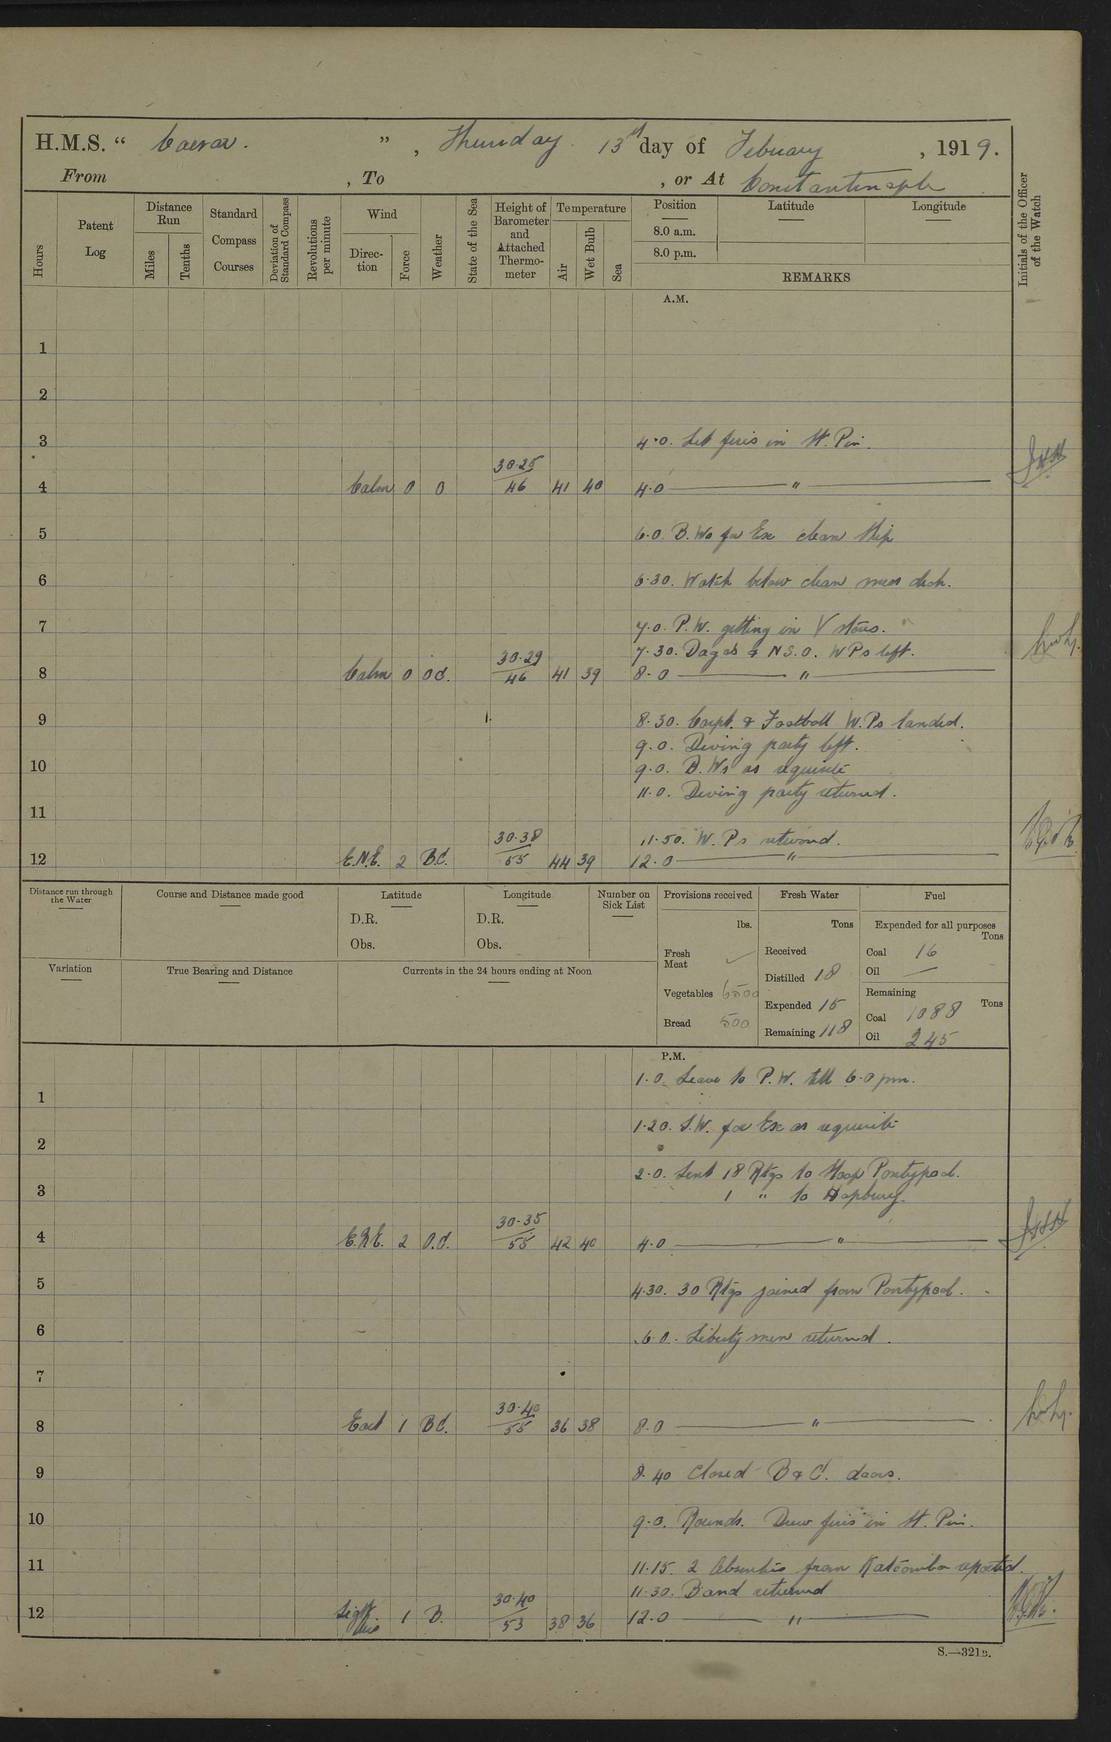 H.M.S. " Caesar. ", Thursday 13th day of February, 1919.
From , To , or At Constantinople
Hours
Patent Log
Distance Run
Miles
Tenths
Standard Compass Courses
Deviation of Standard Compass
Revolutions per minute
Wind
Direction
Force
Weather
State of the Sea
Height of Barometer and Attached Thermometer
Temperature
Air
Wet Bulb
Sea
Position
8.0 a.m.
8.0 p.m.
Latitude
Longitude
REMARKS
Initials of the Officer of the Watch
A.M.
1
2
3 4.0. Lit fires in St. Pin.
4 Calm 0 0 30.25 46 41 40 4.0 "
5 6.0. B.Ws for Ex clean Ship
6 6.30. Watch below clean mess deck.
7 7.0. P.W. getting in V stores.
7.30. Dag as & N.S.O. W Ps left.
8 Calm 0 Od. 30.29 46 41 39 8.0 "
9 8.30. Carpt. & Football W.Ps landed.
9.0. Diving party left.
10 9.0. B.Ws as requisite
11.0. Diving party returned.
11 11.50. W. Ps returned.
12 E.N.E. 2 B.C. 30.38 55 44 39 12.0 "
Distance run through the Water
Course and Distance made good
Latitude
D.R.
Obs.
Longitude
D.R.
Obs.
Number on Sick List
Provisions received
lbs.
Fresh Meat
Vegetables 6500
Bread 500
Fresh Water
Tons
Received
Distilled 18
Expended 15
Remaining 118
Fuel
Expended for all purposes
Tons
Coal 16
Oil —
Remaining
Tons
Coal 1088
Oil 245
Variation
True Bearing and Distance
Currents in the 24 hours ending at Noon
P.M.
1.0. Leave to P.W. till 6.0 pm.
1
1.20. S.W. for Ex as requisite
2
2.0. Sent 18 Rtgs to Pontypool.
3 1 " to
4 E.N.E. 2 O.d. 30.35 55 42 40 4.0 "
5 4.30. 30 Rtgs joined from Pontypool.
6 6.0. Liberty men returned.
7
8 East 1 B.C. 30.40 55 36 38 8.0 "
9 8.40 Closed B & C. doors.
10 9.0. Rounds. Drew fires in St. Pin.
11 11.15. 2 Absentees from Katoomba reported.
11.30. Band returned
12 Light airs 1 B. 30.40 53 38 36 12.0 "
S.—321B.